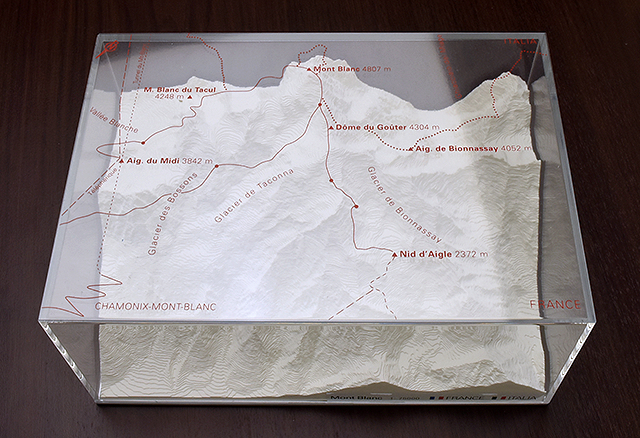 ITALIA
Mont Blanc 4807 m
M. Blanc du Tacul
4248 m
Vallée Blanche
Dôme du Goûter 4304 m
Aig. de Bionnassay 4052 m
Aig. du Midi 3842 m
Glacier des Bossons
Glacier de Taconna
Glacier de Bionnassay
Nid d'Aigle 2372 m
CHAMONIX-MONT-BLANC
FRANCE
Mont Blanc
FRANCE
ITALIA